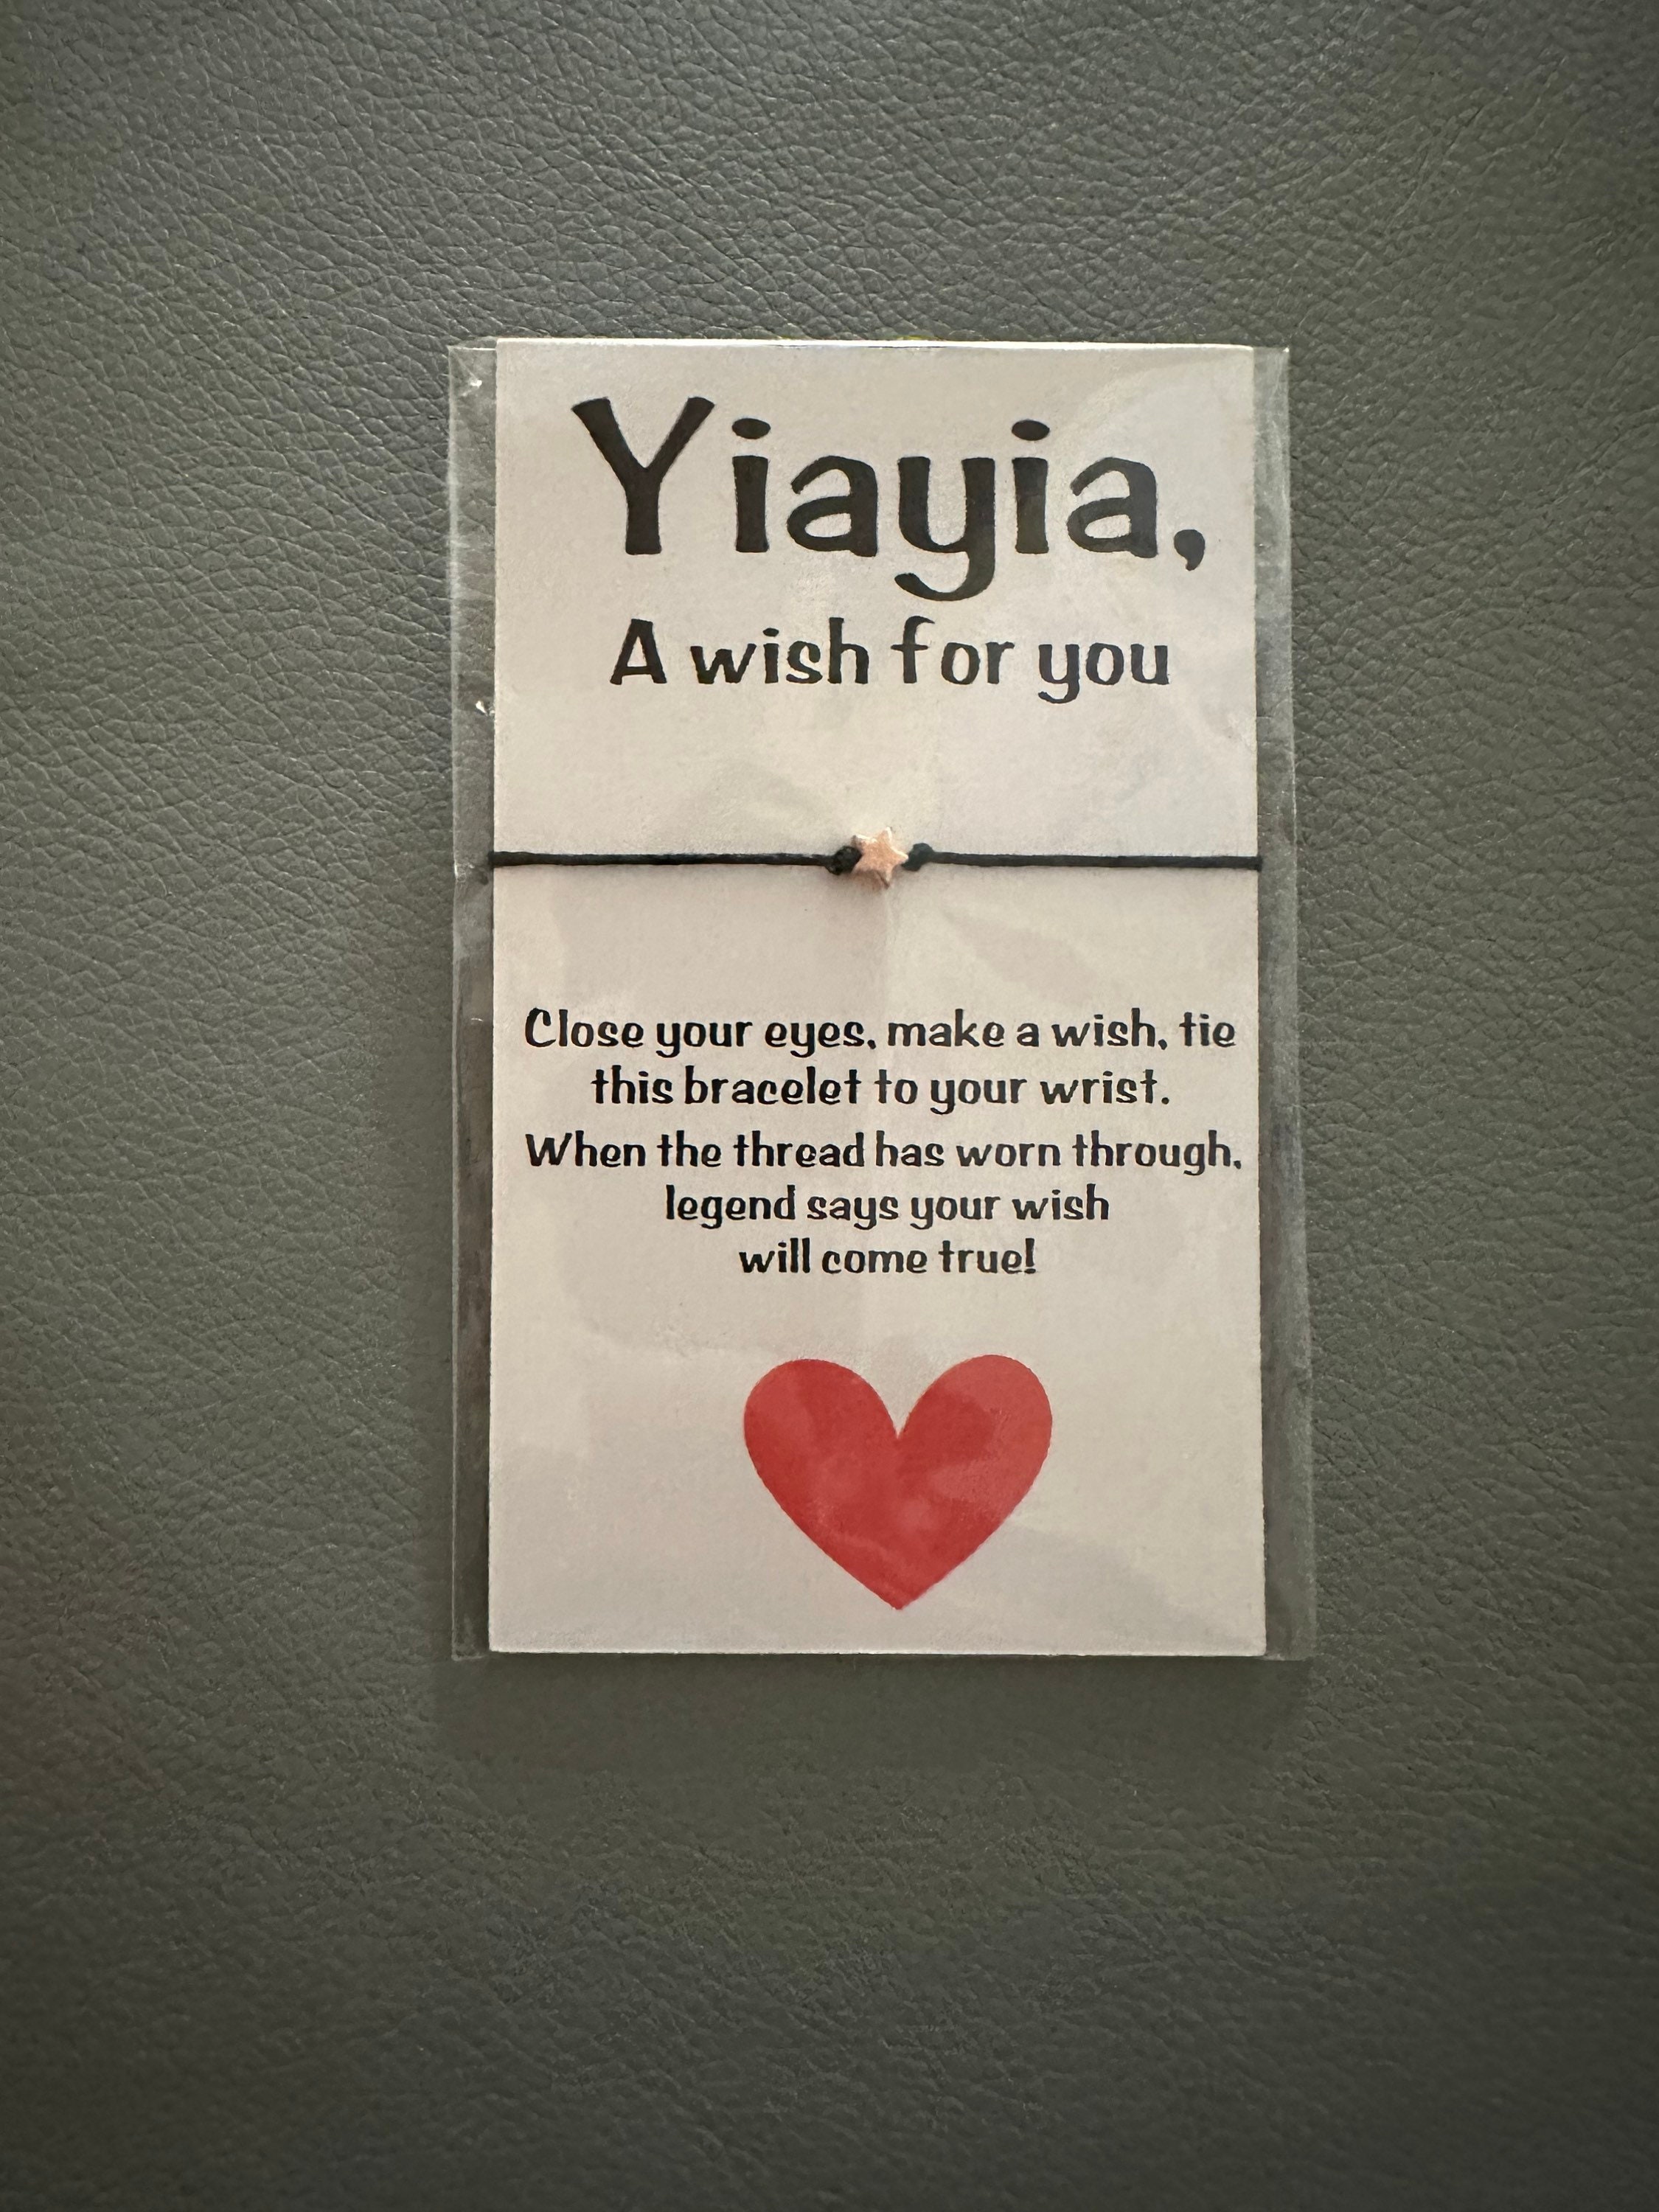 Yiayia,
A wish for you
Close your eyes, make a wish, tie
this bracelet to your wrist.
When the thread has worn through,
legend says your wish
will come true!